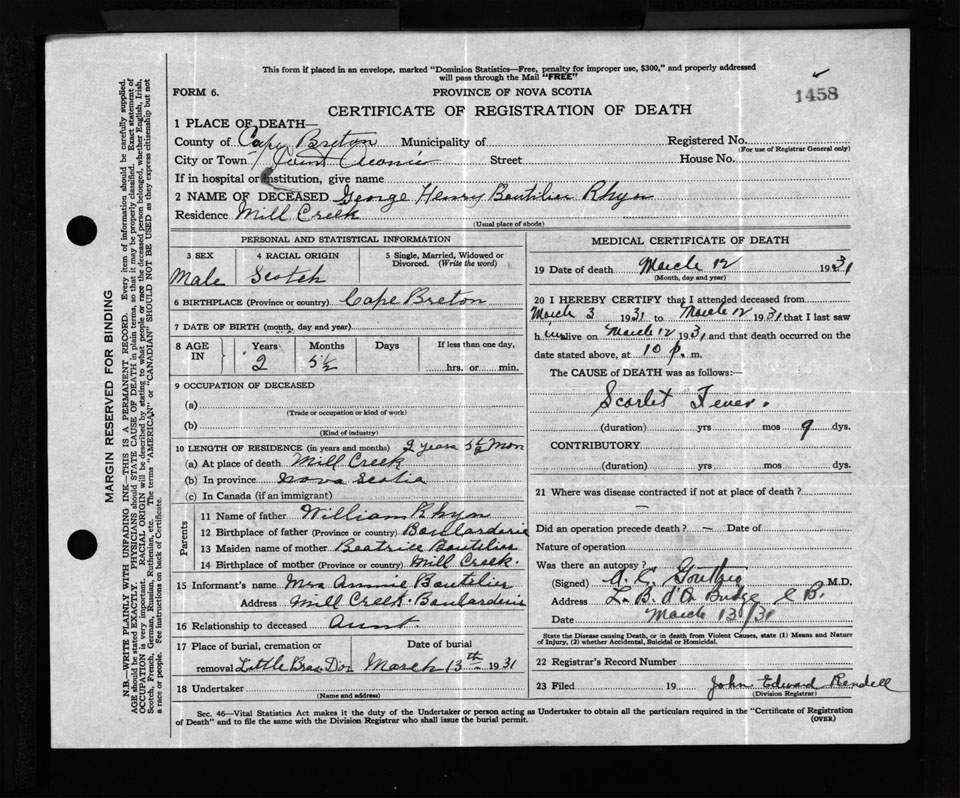 This form if placed in an envelope, marked "Dominion Statistics—Free, penalty for improper use, $300," and properly addressed
will pass through the Mail "FREE"
FORM 6.
PROVINCE OF NOVA SCOTIA
1458
CERTIFICATE OF REGISTRATION OF DEATH
1 PLACE OF DEATH—
County of Cape Breton Municipality of Registered No.
(For use of Registrar General only)
City or Town Point Street House No.
If in hospital or institution, give name
2 NAME OF DECEASED George Henry Boutilier Rhyno
Residence Mill Creek
(Usual place of abode)
PERSONAL AND STATISTICAL INFORMATION
3 SEX 4 RACIAL ORIGIN 5 Single, Married, Widowed or
Divorced. (Write the word)
Male Scotch
6 BIRTHPLACE (Province or country) Cape Breton
7 DATE OF BIRTH (month, day and year)
8 AGE IN Years Months Days If less than one day,
2 5½ hrs. or min.
9 OCCUPATION OF DECEASED
(a)
(Trade or occupation or kind of work)
(b)
(Kind of industry)
10 LENGTH OF RESIDENCE (in years and months) 2 years 5½ Mon
(a) At place of death Mill Creek
(b) In province Nova Scotia
(c) In Canada (if an immigrant)
Parents
11 Name of father William Rhyno
12 Birthplace of father (Province or country) Boularderie
13 Maiden name of mother Beatrice Boutilier
14 Birthplace of mother (Province or country) Mill Creek.
15 Informant's name Mrs Annie Boutilier
Address Mill Creek. Boularderie
16 Relationship to deceased Aunt
17 Place of burial, cremation or Date of burial
removal Little Bras Dor March 13th 1931
18 Undertaker
(Name and address)
MEDICAL CERTIFICATE OF DEATH
19 Date of death March 12 1931
(Month, day and year)
20 I HEREBY CERTIFY that I attended deceased from
March 3 1931 to March 12 1931 that I last saw
him alive on March 12 1931 and that death occurred on the
date stated above, at 10 p. m.
The CAUSE of DEATH was as follows:—
Scarlet Fever.
(duration) yrs mos 9 dys.
CONTRIBUTORY
(duration) yrs mos dys.
21 Where was disease contracted if not at place of death?
—
Did an operation precede death? — Date of
Nature of operation
Was there an autopsy?
(Signed) A. C. M.D.
Address L. B. d'Or Bridge C B.
Date March 13/31
State the Disease causing Death, or in death from Violent Causes, state (1) Means and Nature
of Injury, (2) whether Accidental, Suicidal or Homicidal.
22 Registrar's Record Number
23 Filed 19 John Edward Rendell
(Division Registrar)
Sec. 46—Vital Statistics Act makes it the duty of the Undertaker or person acting as Undertaker to obtain all the particulars required in the "Certificate of Registration
of Death" and to file the same with the Division Registrar who shall issue the burial permit.
(OVER)
MARGIN RESERVED FOR BINDING
N.B.—WRITE PLAINLY WITH UNFADING INK—THIS IS A PERMANENT RECORD. Every item of information should be carefully supplied.
AGE should be stated EXACTLY. PHYSICIANS should STATE CAUSE OF DEATH in plain terms, so that it may be properly classified. Exact statement of
OCCUPATION is very important. RACIAL ORIGIN will be described by stating to what people or race the deceased person belonged, whether English, Irish,
Scotch, French, German, Russian, Ruthenian, etc. The terms "AMERICAN" or "CANADIAN" SHOULD NOT BE USED as they express citizenship but not
a race or people. See instructions on back of Certificate.